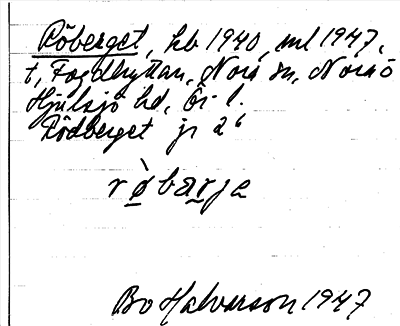 Röberget, hb 1940, ml 1947,
t, Fogdhyttan, Nora sn, Nora o
Hjulsjö hd, Ör l.
Rödberget jr 26
rø̀barje
Bo Halvarson 1947